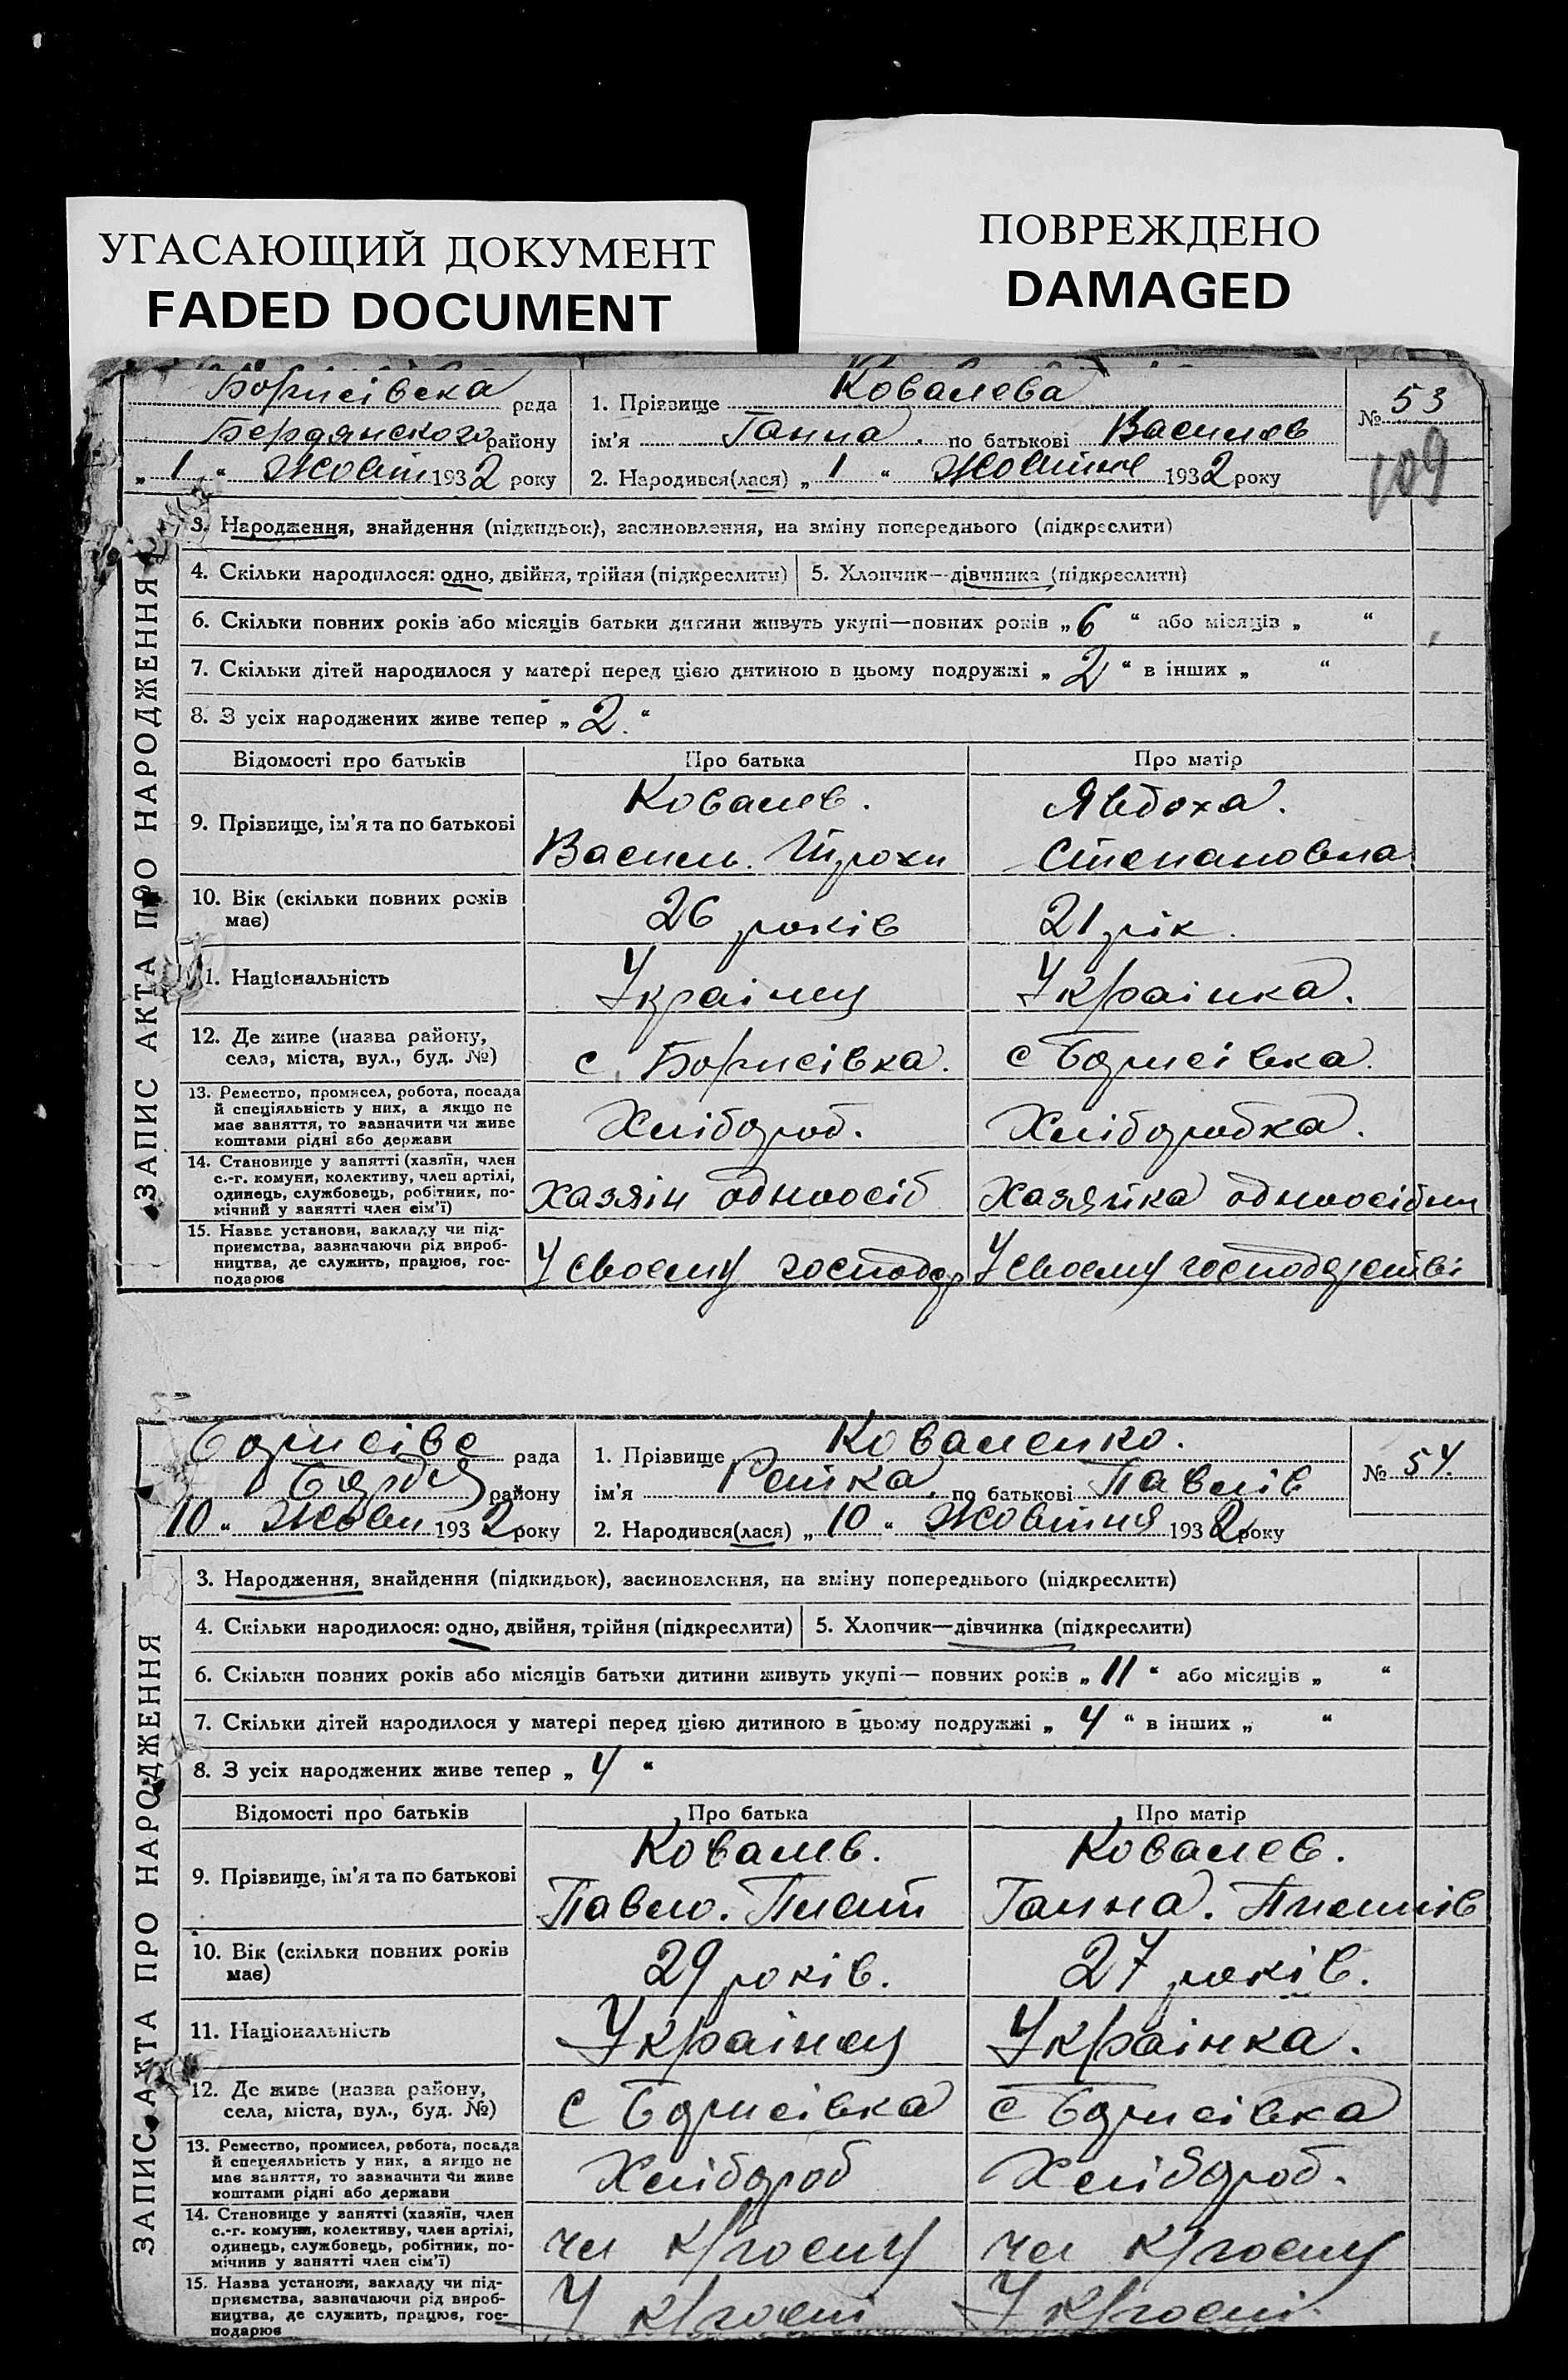 УГАСАЮЩИЙ ДОКУМЕНТ
FADED DOCUMENT
ПОВРЕЖДЕНО
DAMAGED
Борисівска рада
Бердянского району
„ 1 “ Жовт 1932 року
1. Прізвище Ковалева
ім'я Ганна. по батькові Василев
2. Народився(лася) „ 1 “ Жовтня 1932 року
№ 53
109
ЗАПИС АКТА ПРО НАРОДЖЕННЯ
3. Народження, знайдення (підкидьок), засиновлення, на зміну попереднього (підкреслити)
4. Скільки народилося: одно, двійня, трійня (підкреслити)
5. Хлопчик—дівчинка (підкреслити)
6. Скільки повних років або місяців батьки дитини живуть укупі—повних років „ 6 “ або місяців „ “
7. Скільки дітей народилося у матері перед цією дитиною в цьому подружжі „ 2 “ в інших „ “
8. З усіх народжених живе тепер „ 2. “
Відомості про батьків Про батька Про матір
9. Прізвище, ім'я та по батькові
Ковалев.
Василь. Трохи
Явдоха.
Степановна
10. Вік (скільки повних років
має)
26 років
21 рік.
11. Національність
Українец
Українка.
12. Де живе (назва району,
села, міста, вул., буд. №)
с. Борисівка.
с Борисівка.
13. Ремество, промисел, робота, посада
й спеціяльність у них, а якщо не
має заняття, то зазначити чи живе
коштами рідні або держави
Хлібороб.
Хліборобка.
14. Становище у занятті (хазяїн, член
с.-г. комуни, колективу, член артілі,
одинець, службовець, робітник, по-
мічний у занятті член сім'ї)
Хазяін одноосіб
Хазяйка одноосібни
15. Назва установи, закладу чи під-
приємства, зазначаючи рід вироб-
ництва, де служить, працює, гос-
подарює
У своему господар
У своему господарстві
Борисівс рада
Бердя району
10 „ Жовт 1932 року
1. Прізвище Коваленко.
ім'я по батькові Павлів
2. Народився(лася) „ 10 “ Жовтня 1932 року
№ 54.
ЗАПИС АКТА ПРО НАРОДЖЕННЯ
3. Народження, знайдення (підкидьок), засиновлення, на зміну попереднього (підкреслити)
4. Скільки народилося: одно, двійня, трійня (підкреслити)
5. Хлопчик—дівчинка (підкреслити)
6. Скільки повних років або місяців батьки дитини живуть укупі— повних років „ 11 “ або місяців „ “
7. Скільки дітей народилося у матері перед цією дитиною в цьому подружжі „ 4 “ в інших „ “
8. З усіх народжених живе тепер „ 4 “
Відомості про батьків Про батька Про матір
9. Прізвище, ім'я та по батькові
Ковалв.
Павло. Плат
Ковалев.
Ганна.
10. Вік (скільки повних років
має)
29 років.
27 років.
11. Національність
Українец
Українка.
12. Де живе (назва району,
села, міста, вул., буд. №)
с Борисівка
с Борисівка
13. Ремество, промисел, робота, посада
й спецеяльність у них, а якщо не
має заняття, то зазначити чи живе
коштами рідні або держави
Хлібороб
Хлібороб.
14. Становище у занятті (хазяїн, член
с.-г. комуни, колективу, член артілі,
одинець, службовець, робітник, по-
мічнив у занятті член сім'ї)
чл
чл
15. Назва установи, закладу чи під-
приємства, зазначаючи рід вироб-
ництва, де служить, працює, гос-
подарює
У
У